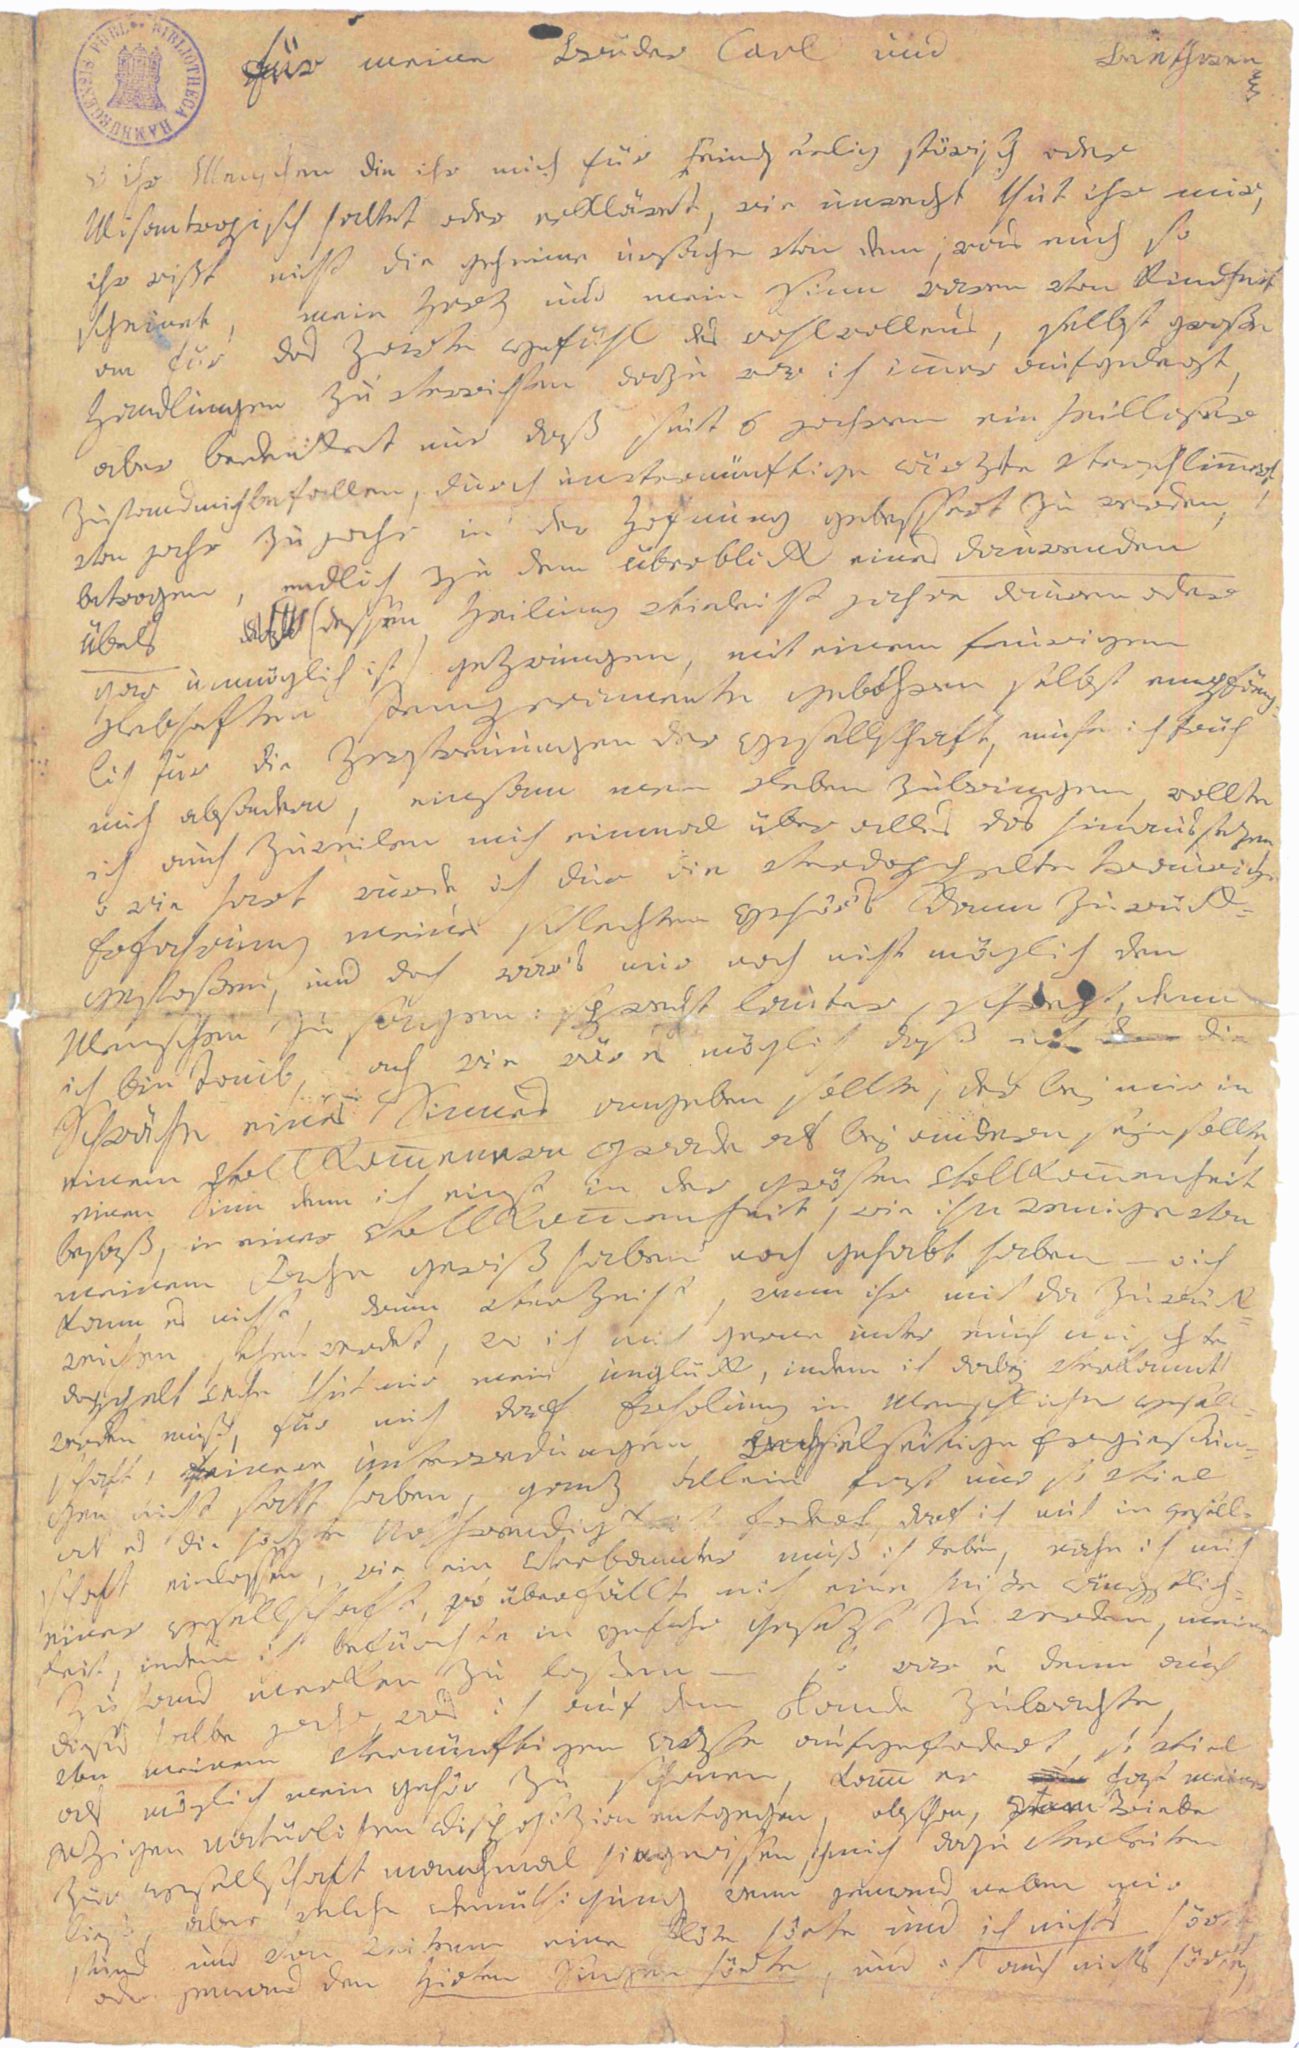 BIBLIOTHECA HAMBURGENSIS PUBL.
für meine brüder Carl und
o ihr Menschen die ihr mich für feindseelig störisch oder
Misantropisch haltet oder erkläret, wie unrecht thut ihr mir,
ihr wißt nicht die geheime ursache von dem, was euch so
scheinet, mein Herz und mein Sinn waren von Kindheit
an für das Zarte gefühl des wohlwollens, selbst große
Handlungen zu verrichten dazu war ich imer aufgelegt,
aber bedenket nur daß seit 6 jahren ein heilloser
Zustand mich befallen, durch unvernünftige ärzte verschlimert,
von jahr zu jahr in der Hofnung gebessert zu werden,
betrogen, endlich zu dem überblick eines daurenden
Übels (dessen Heilung vieleicht jahre dauren oder
gar unmöglich ist) gezwungen, mit einem feurigen
Lebhaften Temperamente gebohren selbst empfäng-
lich für die Zerstreuungen der gesellschaft, muste ich früh
mich absondern, einsam mein Leben zubringen, wollte
ich auch zuweilen mich einmal über alles das hinaussezen,
o wie hart wurde ich dur die verdoppelte traurige
Erfahrung meines schlechten gehör's dann zurück-
gestoßen, und doch war's mir noch nicht möglich den
Menschen zu sagen: sprecht lauter, schreyt, denn
ich bin taub, ach wie wär es möglich daß ich die
Schwäche eines Sinnes angeben sollte, der bej mir in
einem Vollkomenern grade als bej andern sejn sollte,
einen Sinn denn ich einst in der grösten Vollkomenheit
besaß, in einer Vollkomenheit, wie ihn wenige von
meinem Fache gewiß haben noch gehabt haben — o ich
kann es nicht, drum verzeiht, wenn ihr mich da zurück-
weichen sehen werdet, wo ich mich gerne unter euch mischte,
doppelt wehe thut mir mein unglück, indem ich dabej verkannt
werden muß, für mich darf Erholung in Menschlicher gesell-
schaft, feinere unterredungen, wechselseitige Ergießun-
gen nicht statt haben, ganz allein fast nur so viel
als es die höchste Nothwendigkeit fodert, darf ich mich in gesell-
schaft einlassen, wie ein Verbannter muß ich leben, nahe ich mich
einer gesellschaft, so überfällt mich eine heiße ängstlich-
keit, indem ich befürchte in gefahr gesezt zu werden, meinen
Zustand merken zu lassen — so war es denn auch
dieses halbe jahr, was ich auf dem Lande zubrachte,
von meinem vernünftigen arzte aufgefodert, so viel
als möglich mein gehör zu schonen, kam er fast meiner
jezigen natürlichen Disposizion entgegen, obschon, vom Triebe
zur gesellschaft manchmal hingerissen, ich mich dazu verleiten
ließ, aber welche demüthigung wenn jemand neben mir
stund und von weitem eine flöte hörte und ich nichts hörte
oder jemand den Hirten Singen hörte, und ich auch nichts hörte,